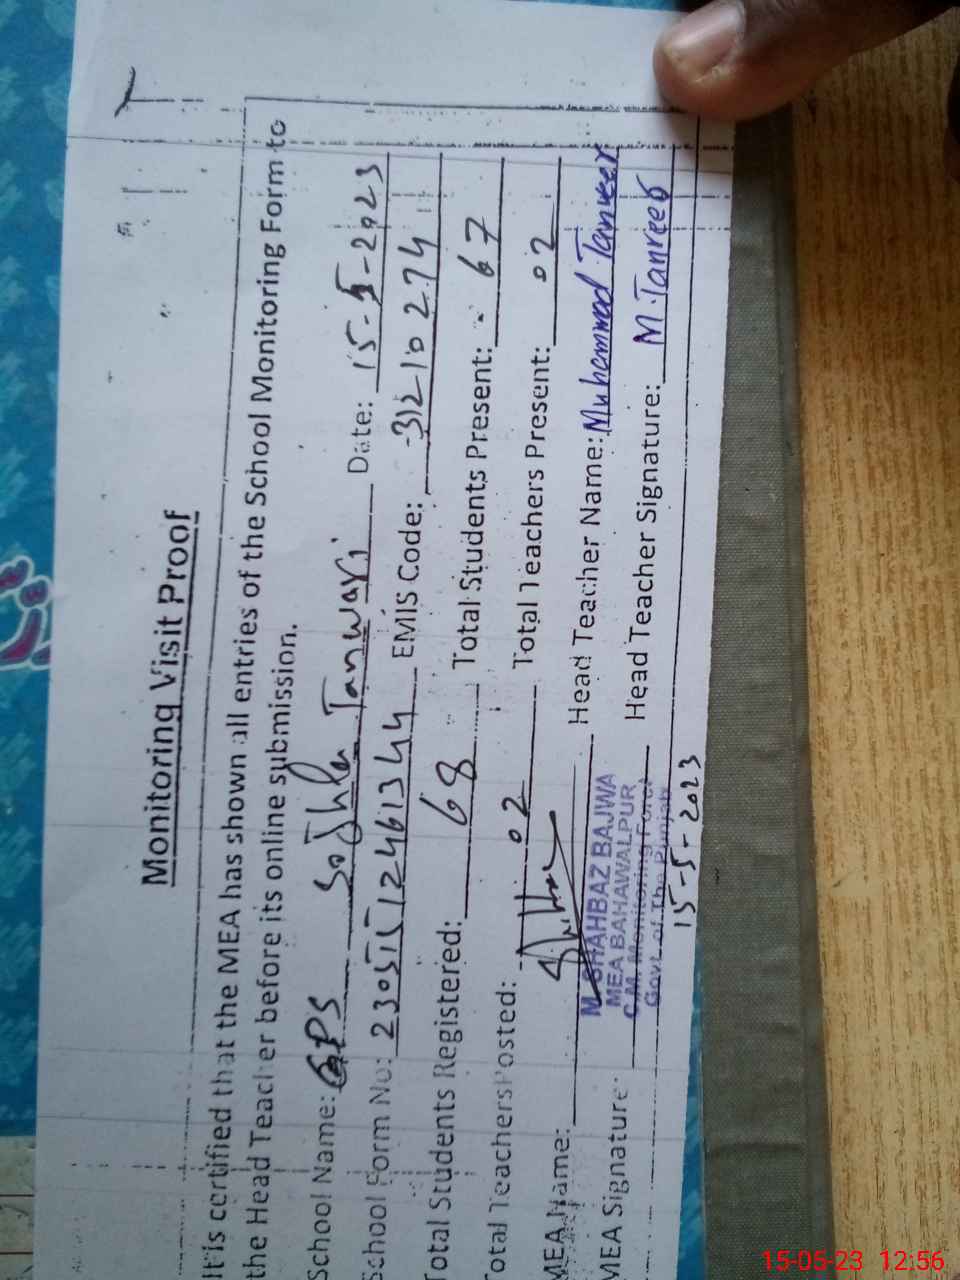 Monitoring Visit Proof
It is certified that the MEA has shown all entries of the School Monitoring Form to
the Head Teacher before its online submission.
School Name: GPS Sojhla Tanwari Date: 15-5-2023
School Form No: 23051512461344 EMIS Code: 31210274
Total Students Registered: 68 Total Students Present: 67
Total Teachers Posted: 02 Total Teachers Present: 02
MEA Name: Head Teacher Name: Muhammad Tanveer
M SHAHBAZ BAJWA
MEA BAHAWALPUR
C.M. Monitoring Force
Govt. of The Punjab
MEA Signature: Head Teacher Signature: M. Tanveer
15-5-2023
15-05-23 12:56